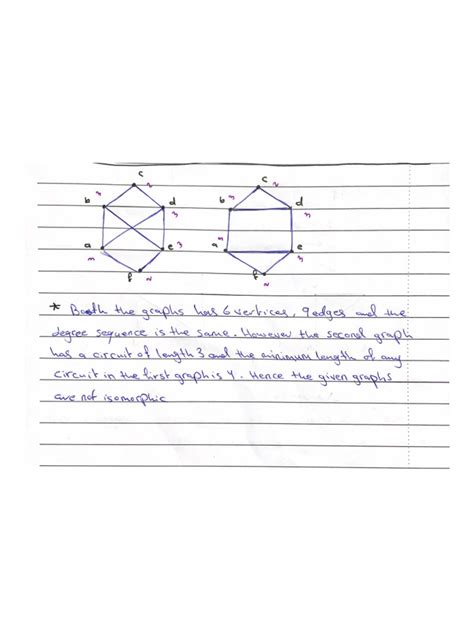 c c
2 2
3 3
b d b d
3 3
a e 3 a e
3 3 3
f f
2 2
* Booth the graphs has 6 vertices, 9 edges and the
degree sequence is the same. However the second graph
has a circuit of length 3 and the minimum length of any
circuit in the first graph is 4. Hence the given graphs
are not isomorphic